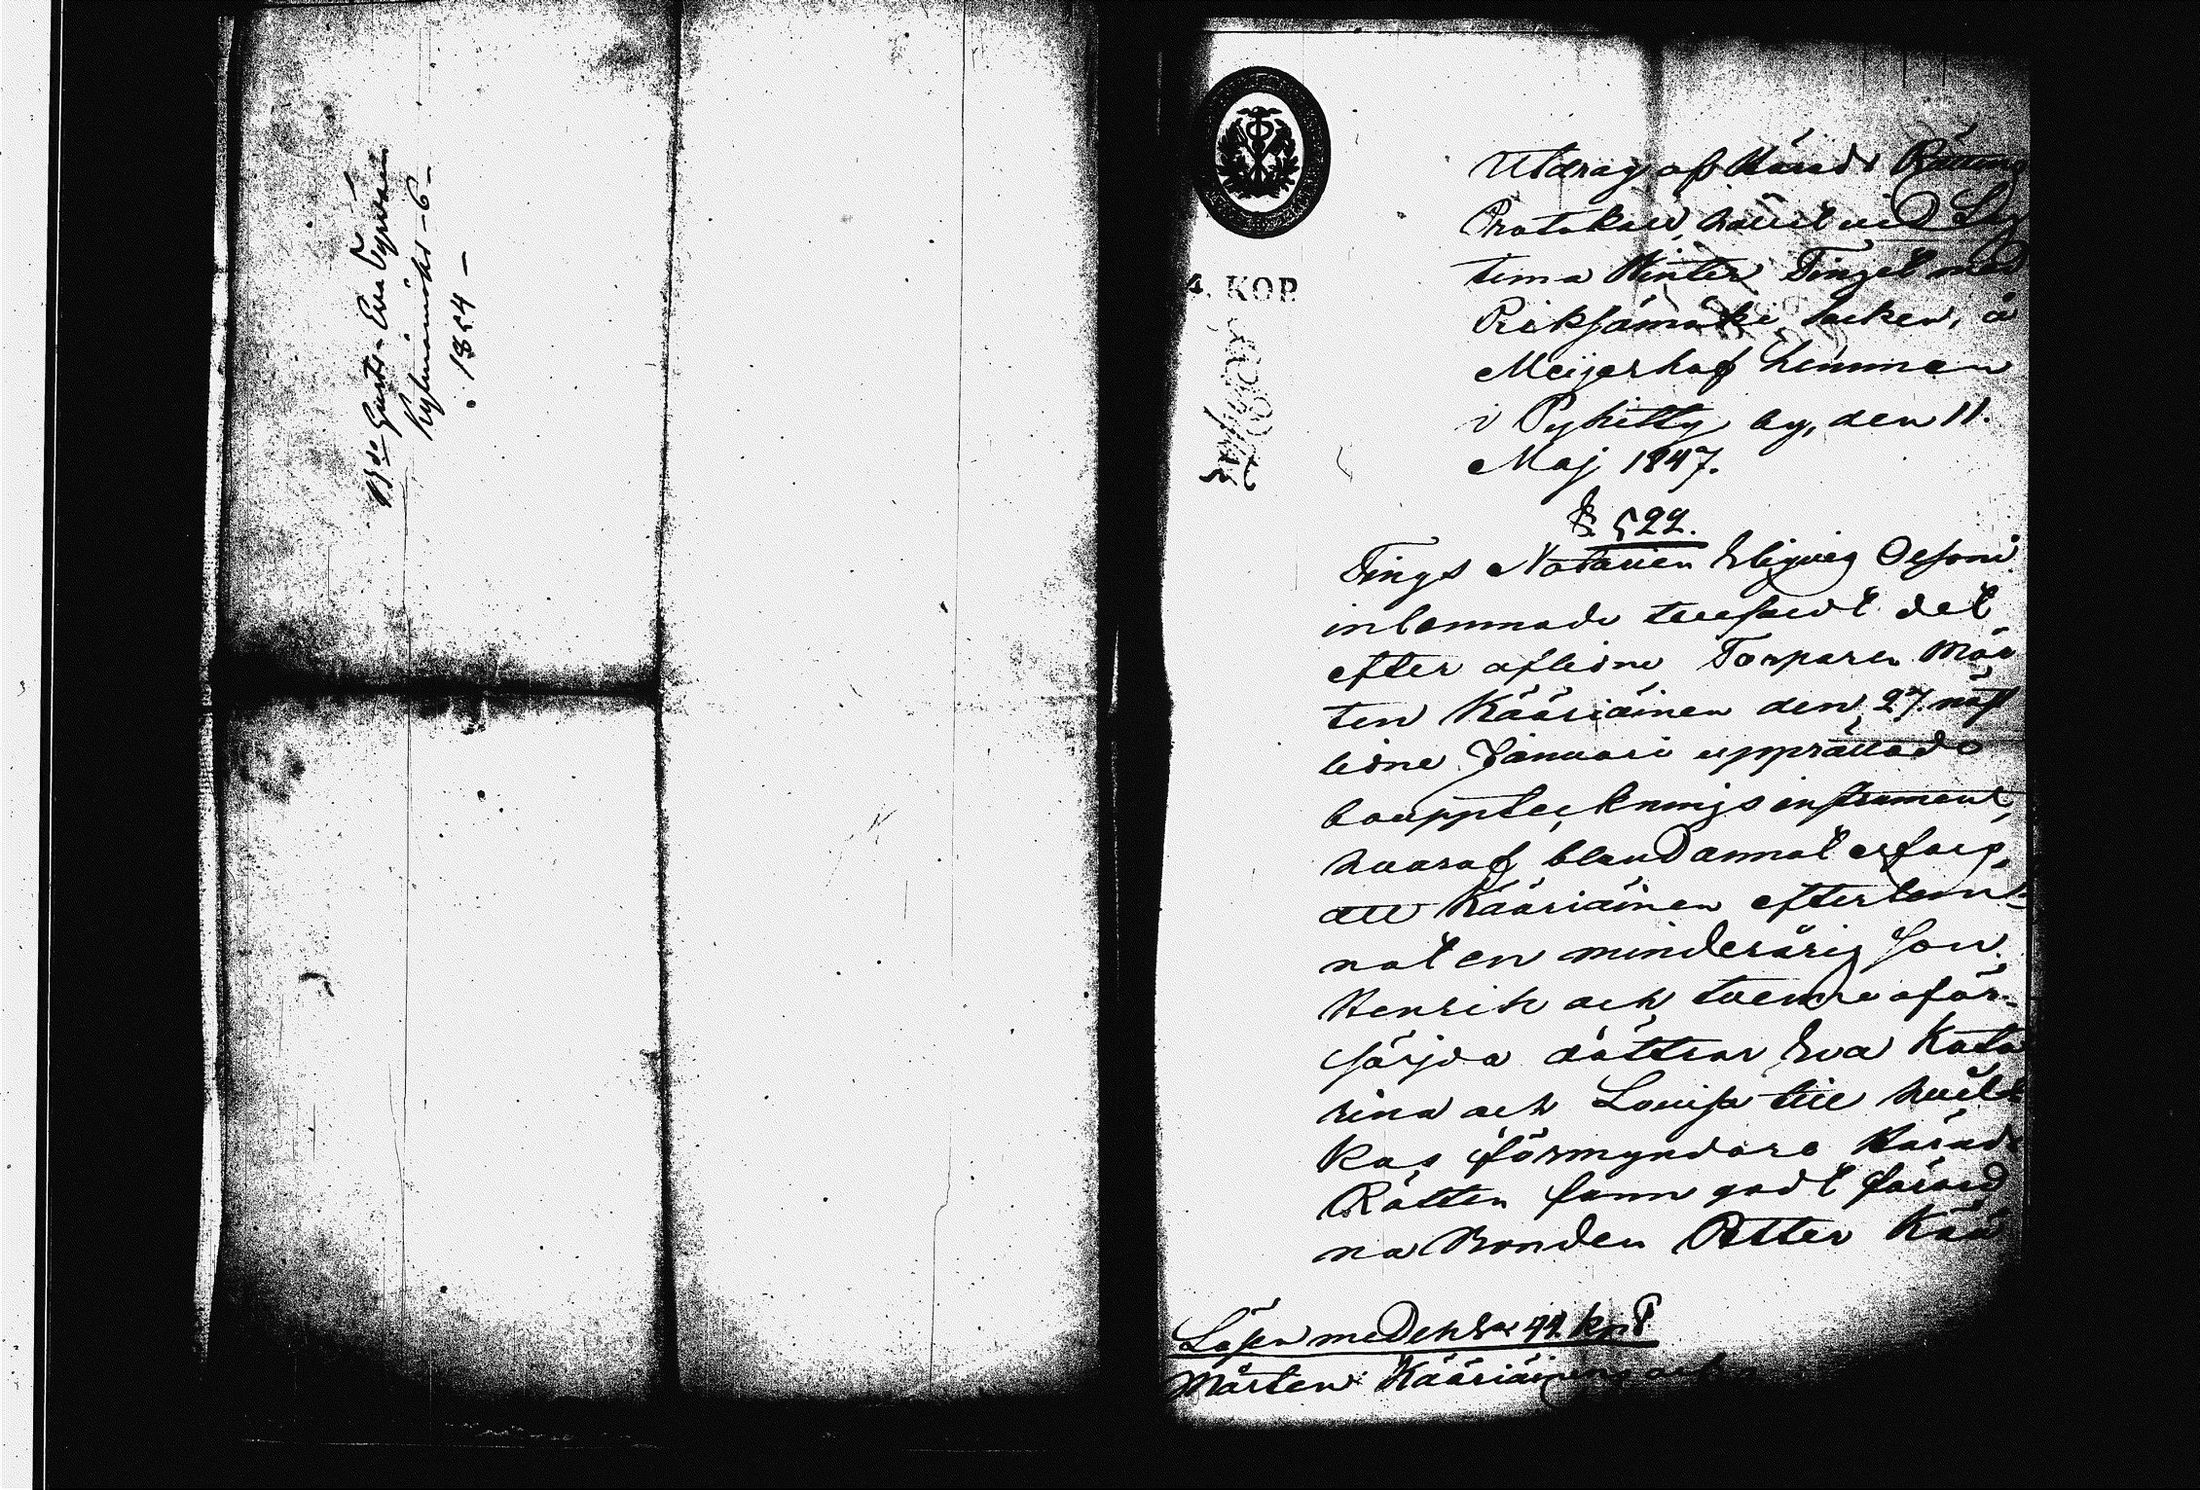 Bde Gusts. Eva Tyrväin
Kylmämäki - 6 -
1854 -
4. KOP.
Utdrag af Härads Rättens
Protokoll, hållit vid Lag
tima Winter Tinget med
Pieksämäki Socken, å
Meijerhof hemman
i Pyhitty by, den 11.
Maj 1847.
§ 522.
Tings Notarien
inlemnade det
efter aflidne Torparen Mår
ten Kääriäinen den 27 näst
lidne Januari upprättade
bouppteckningsinstrument,
hvaraf bland annat erfors,
att Kääriäinen efterlem
nat en minderårig Son
Henrik och tvenne oför-
sörjda döttrar Eva Kata
rina och Lovisa till hvil
kas förmyndare Härads
Rätten fann godt förord
na Bonden Petter Kää
Lösen med 44 kop S
Mårten Kääriäinens